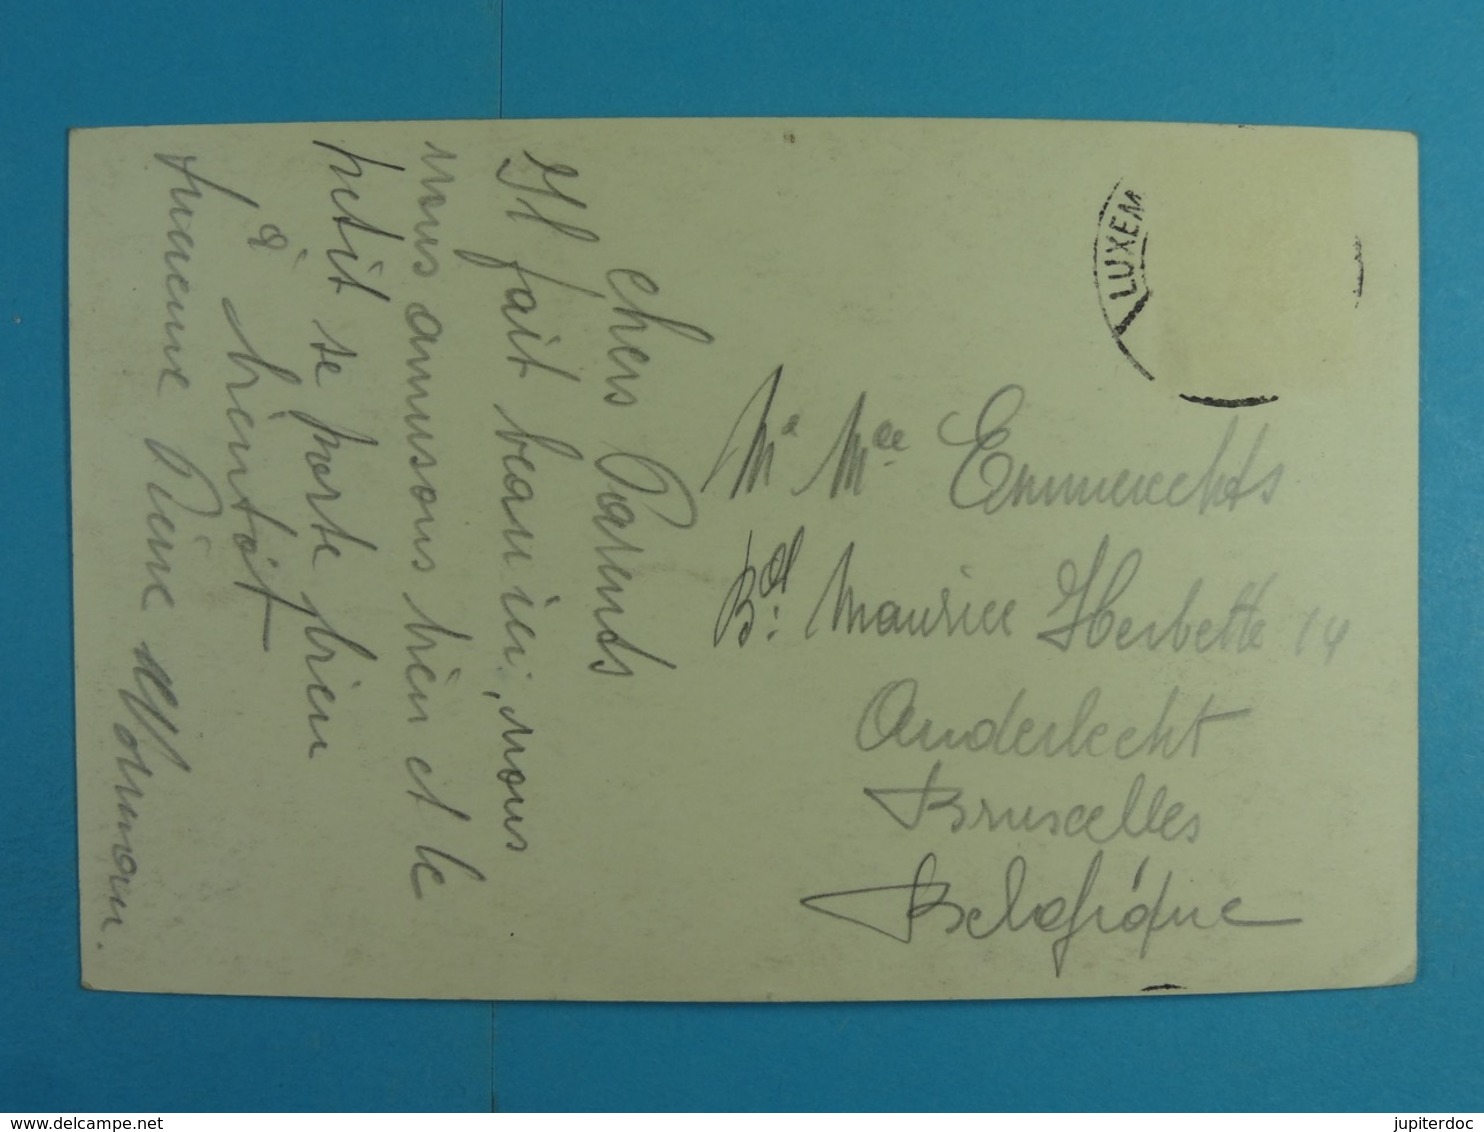 Chers Parents
Il fait beau ici, nous
nous amusons bien et le
petit se porte bien
à bientôt
LUXEM
Mr Mme Emmerechts
Bd. Maurice Herbette 14
Anderlecht
Bruxelles
Belgique
www.delcampe.net
jupiterdoc